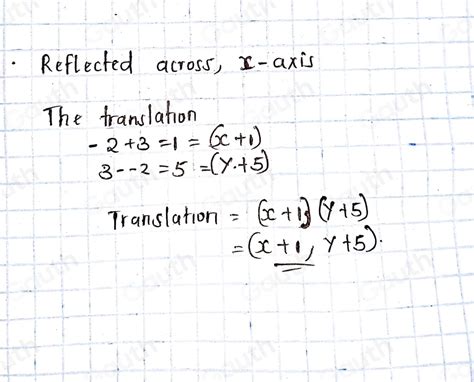 · Reflected across, x-axis
The translation
-2+3=1=(x+1)
3--2=5=(Y+5)
Translation = (x+1)(Y+5)
=(x+1, Y+5).